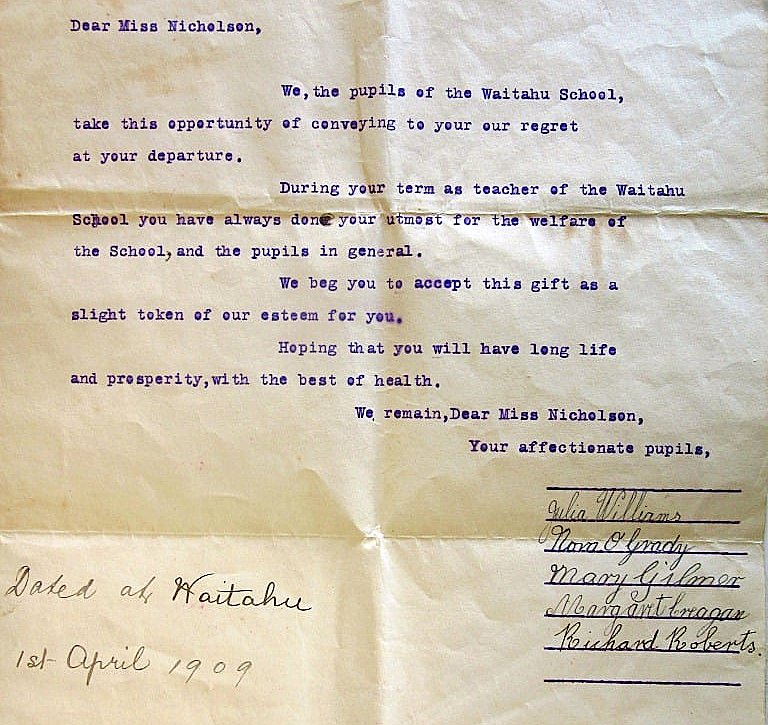 Dear Miss Nicholson,
We, the pupils of the Waitahu School,
take this opportunity of conveying to your our regret
at your departure.
During your term as teacher of the Waitahu
School you have always done your utmost for the welfare of
the School, and the pupils in general.
We beg you to accept this gift as a
slight token of our esteem for you.
Hoping that you will have long life
and prosperity,with the best of health.
We remain,Dear Miss Nicholson,
Your affectionate pupils,
Julia Williams
Nora O'Grady
Mary Gilmer
Margaret Creggan
Richard Roberts.
Dated at Waitahu
1st April 1909